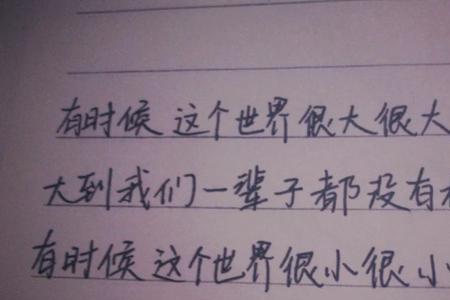 有时候这个世界很大很大
大到我们一辈子都没有
有时候这个世界很小很小